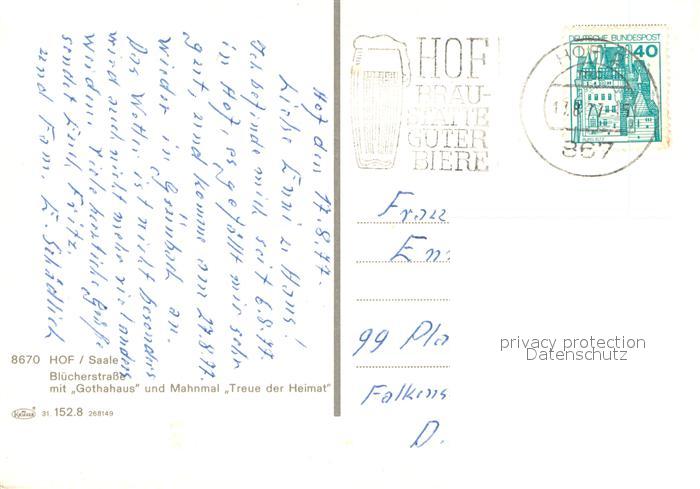 Hof den 17.8.77.
Liebe Erni u. Hans!
befinde mich seit 6.8.77.
in Hof, es gefällt mir sehr
gut, und komme am 27.8.77.
wieder in an.
Das Wetter ist nicht besonders
wird auch nicht mehr viel anders
werden. Viele herzliche Grüße
sendet Euch Fritz
und Fam. E. Schädlich
8670 HOF / Saale
Blücherstraße
mit „Gothahaus" und Mahnmal „Treue der Heimat"
Krüger 31. 152.8 268149
HOF
BRAU-
STÄTTE
GUTER
BIERE
DEUTSCHE BUNDESPOST
40
HOF
17.8.77
867
Frau
99 Pla
Falkins
D.
privacy protection
Datenschutz